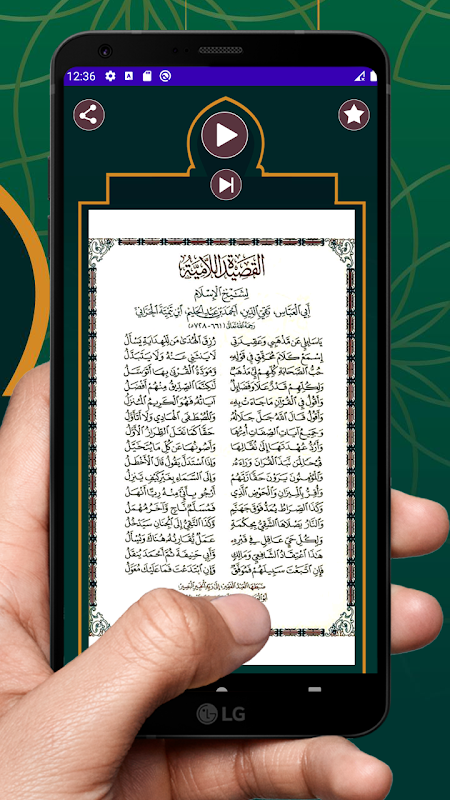 12:36
القصيدة اللامية
لشيخ الإسلام
أبي العباس، تقي الدين، أحمد بن عبد الحليم، ابن تيمية الحراني
رحمه الله تعالى (٦٦١-٧٢٨هـ)
يا سائلي عن مذهبي وعقيدتي رزق الهدى من للهداية يسأل
اسمع كلام محقق في قوله لا ينثني عنه ولا يتبدل
حب الصحابة كلهم لي مذهب ومودة القربى بها أتوسل
ولكلهم قدر علا وفضائل لكنما الصديق منهم أفضل
وأقول في القرآن ما جاءت به آياته فهو الكريم المنزل
وأقول قال الله جل جلاله والمصطفى الهادي ولا أتأول
وجميع آيات الصفات أمرها حقا كما نقل الطراز الأول
وأرد عهدتها إلى نقالها وأصونها عن كل ما يتخيل
قبحا لمن نبذ القران وراءه وإذا استدل يقول قال الأخطل
والمؤمنون يرون حقا ربهم وإلى السماء بغير كيف ينزل
وأقر بالميزان والحوض الذي أرجو بأني منه ريا أنهل
وكذا الصراط يمد فوق جهنم فمسلم ناج وآخر مهمل
والنار يصلاها الشقي بحكمة وكذا التقي إلى الجنان سيدخل
ولكل حي عاقل في قبره عمل يقارنه هناك ويسأل
هذا اعتقاد الشافعي ومالك وأبي حنيفة ثم أحمد ينقل
فإن اتبعت سبيلهم فموفق وإن ابتدعت فما عليك معول
LG